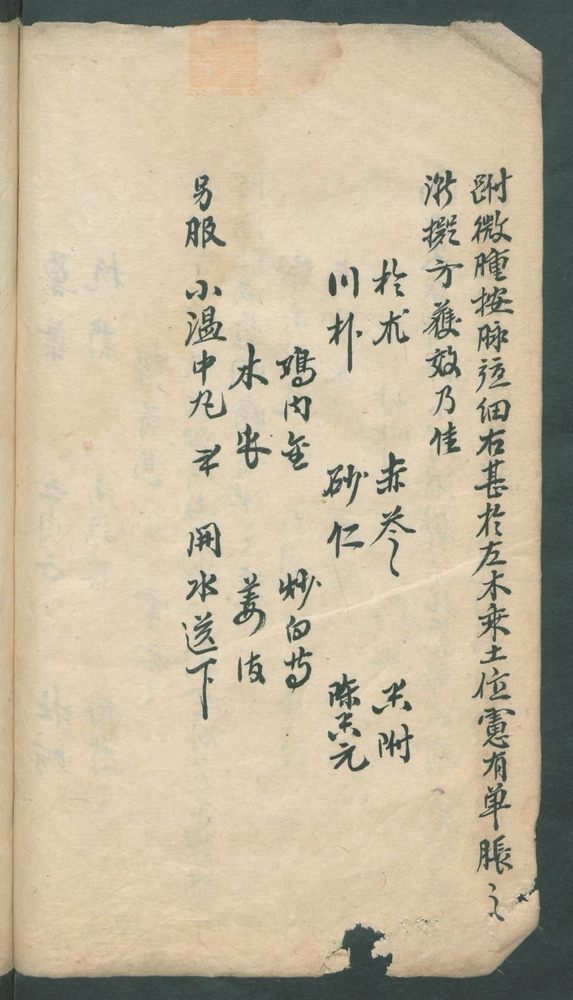 跗微腫按脉弦细右甚於左木乘土位慮有单脹之
漸擬方獲效乃佳
於朮 赤苓 米附
川朴 砂仁 陈米元
鳮内金 炒白芍
木 姜皮
另服 小温中丸 开水送下